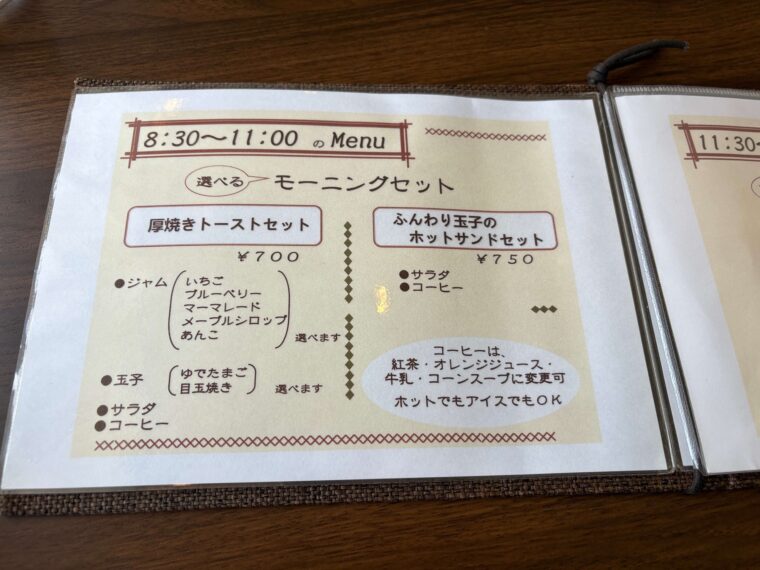 8:30～11:00 の Menu
選べる モーニングセット
厚焼きトーストセット
￥７００
●ジャム
いちご
ブルーベリー
マーマレード
メープルシロップ
あんこ
選べます
●玉子
ゆでたまご
目玉焼き
選べます
●サラダ
●コーヒー
ふんわり玉子の
ホットサンドセット
￥７５０
●サラダ
●コーヒー
コーヒーは、
紅茶・オレンジジュース・
牛乳・コーンスープに変更可
ホットでもアイスでもＯＫ
11:30～